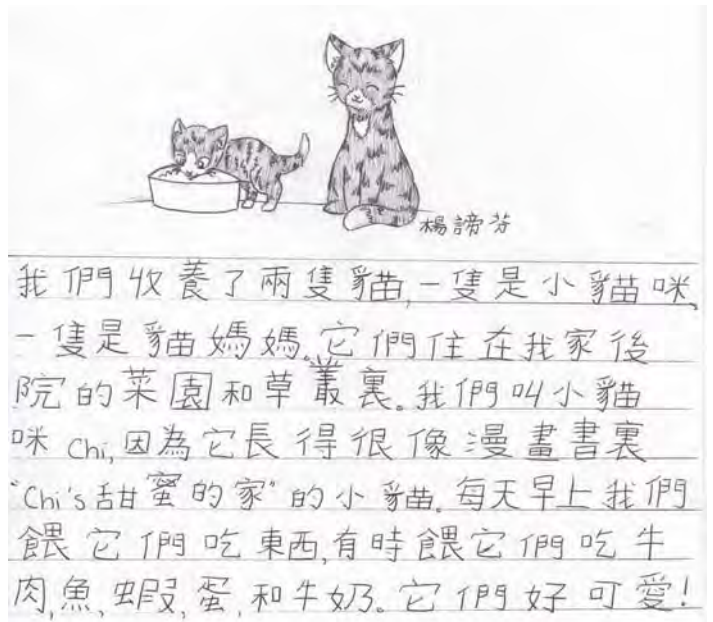 楊諦芬
我們收養了兩隻貓,一隻是小貓咪、
一隻是貓媽媽。它們住在我家後
院的菜園和草叢裏。我們叫小貓
咪 Chi,因為它長得很像漫畫書裏
"Chi's甜蜜的家"的小貓。每天早上我們
餵它們吃東西,有時餵它們吃牛
肉,魚、蝦,蛋,和牛奶。它們好可愛!